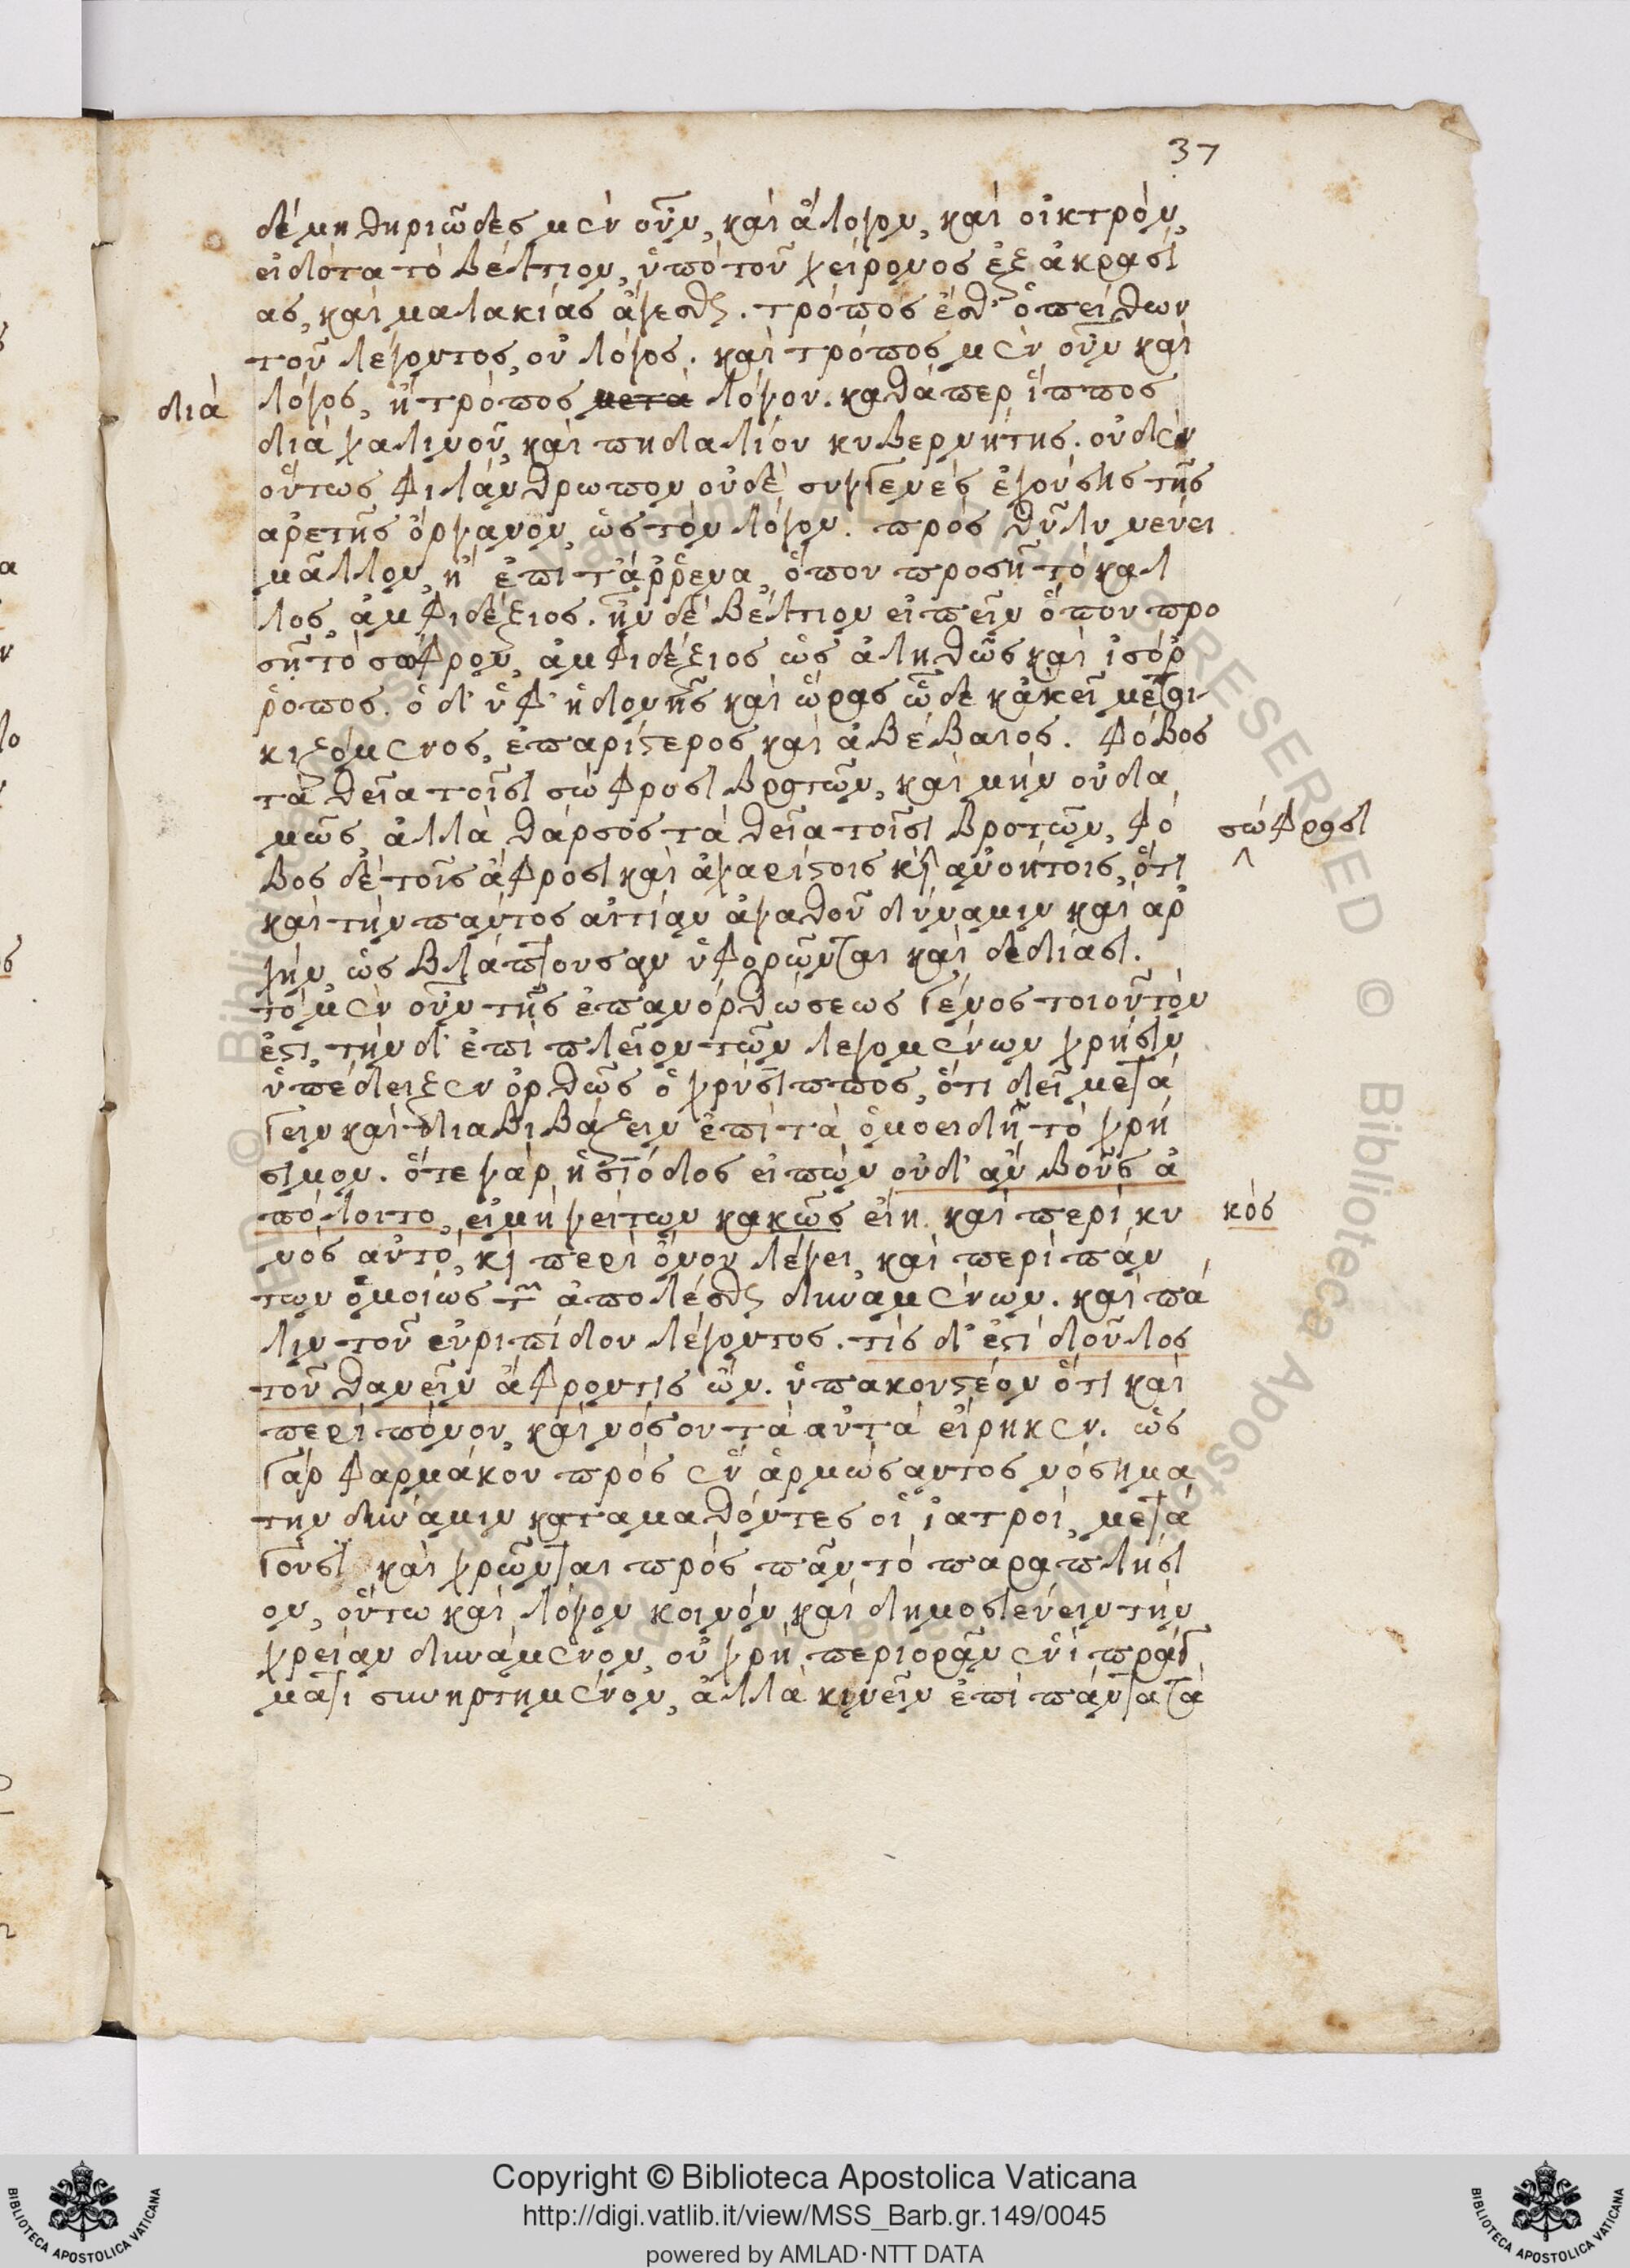 37
δέ μὴ θηριῶδες μὲν οὖν, καὶ ἄλογον, καὶ οἰκτρὸν,
εἰδότα τὸ βέλτιον, ὑπὸ τοῦ χείρονος ἐξ ἀκρασί
ας, καὶ μαλακίας ἄγεσθαι. τρόπος ἐσθ' ὁ πείθων
τοῦ λέγοντος, οὐ λόγος. καὶ τρόπος μὲν οὖν καὶ
διὰ
λόγος, ἢ τρόπος μετὰ λόγου. καθάπερ ἵππος
διὰ χαλινοῦ, καὶ πηδαλίου κυβερνήτης. οὐδὲν
οὕτως φιλάνθρωπον οὐδὲ συγγενὲς ἐχούσης τῆς
ἀρετῆς ὄργανον, ὡς τὸν λόγον. πρὸς θῆλυ νεύει
μᾶλλον, ἢ ἐπὶ τἄῤῥενα, ὅπου προσῇ τὸ κάλ
λος, ἀμφιδέξιος. ἦν δὲ βέλτιον εἰπεῖν ὅπου προ
σῇ τὸ σῶφρον, ἀμφιδέξιος ὡς ἀληθῶς καὶ ἰσόῤ
ῥοπος. ὁ δ' ὑφ' ἡδονῆς καὶ ὥρας ὧδε κἀκεῖ μετοι
κιζόμενος, ἐπαρίστερος καὶ ἀβέβαιος. φόβος
τὰ θεῖα τοῖσι σώφροσι βροτῶν, καὶ μὴν οὐδα
μῶς, ἀλλὰ θάρσος τὰ θεῖα τοῖσι βροτῶν, φό
σώφροσι
βος δὲ τοῖς ἄφροσι καὶ ἀχαρίστοις καὶ ἀνοήτοις, ὅτι
καὶ τὴν παντὸς αἰτίαν ἀγαθοῦ δύναμιν καὶ ἀρ
χὴν, ὡς βλάπτουσαν ὑφορῶνται καὶ δεδίασι.
τὸ μὲν οὖν τῆς ἐπανορθώσεως γένος τοιοῦτόν
ἐστι, τὴν δ' ἐπὶ πλεῖον τῶν λεγομένων χρῆσιν
ὑπέδειξεν ὀρθῶς ὁ χρύσιππος, ὅτι δεῖ μετά
γειν καὶ διαβιβάζειν ἐπὶ τὰ ὁμοειδῆ τὸ χρή
σιμον. ὅτε γὰρ ἡσίοδος εἰπὼν οὐδ' ἂν βοῦς ἀ
πόλοιτο, εἰ μὴ γείτων κακῶς εἴη. καὶ περὶ κυ
κὸς
νὸς αὐτὸ, καὶ περὶ ὄνου λέγει, καὶ περὶ πάν
των ὁμοίως τῶν ἀπολέσθαι δυναμένων. καὶ πά
λιν τοῦ εὐριπίδου λέγοντος. τίς δ' ἐστὶ δοῦλος
τοῦ θανεῖν ἄφροντις ὤν. ὑπακουστέον ὅτι καὶ
περὶ πόνου, καὶ νόσου τὰ αὐτὰ εἴρηκεν. ὡς
γὰρ φαρμάκου πρὸς ἓν ἁρμώσαντος νόσημα
τὴν δύναμιν καταμαθόντες οἱ ἰατροὶ, μετά
γουσι καὶ χρῶνται πρὸς πᾶν τὸ παραπλήσι
ον, οὕτω καὶ λόγον κοινὸν καὶ δημοσιεύειν τὴν
χρείαν δυνάμενον, οὐ χρὴ περιορᾶν ἑνὶ πράγ
ματι συνηρτημένον, ἀλλὰ κινεῖν ἐπὶ πάντα τὰ
Copyright © Biblioteca Apostolica Vaticana
http://digi.vatlib.it/view/MSS_Barb.gr.149/0045
powered by AMLAD·NTT DATA
BIBLIOTECA APOSTOLICA VATICANA
BIBLIOTECA APOSTOLICA VATICANA